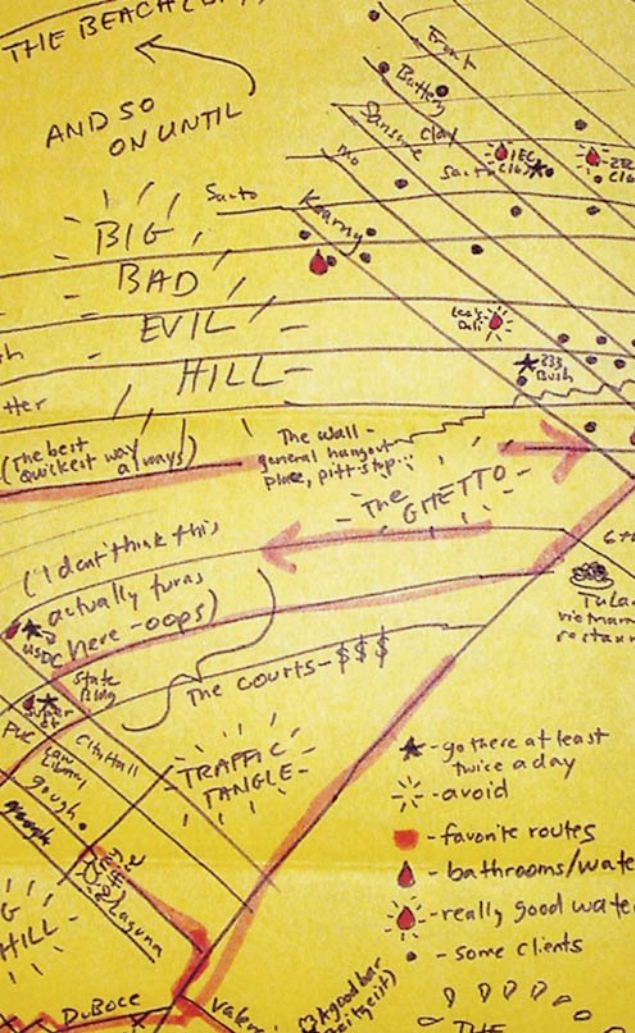 THE BEACH
AND SO
ON UNTIL
Front
Battery
Sansome
Clay
Mo
Sacto
1EC
Kearny
Sacto
BIG
BAD
EVIL
HILL
Lee's
Deli
333
Bush
tter
(The best
quickest way
always)
The wall -
general hangout
place, pitt-stop...
- The GHETTO -
(I don't think this
actually turns
here - oops)
USDC
State
Bldg
The COURTS - $$$
PUC
City Hall
Law
Library
Gough
TRAFFIC
TANGLE -
Laguna
G
HILL -
DuBoce
Valen
good bar
Tula
Vietnam
restaur
- go there at least
twice a day
- avoid
- favorite routes
- bathrooms/wate
- really good wate
- some clients
THE